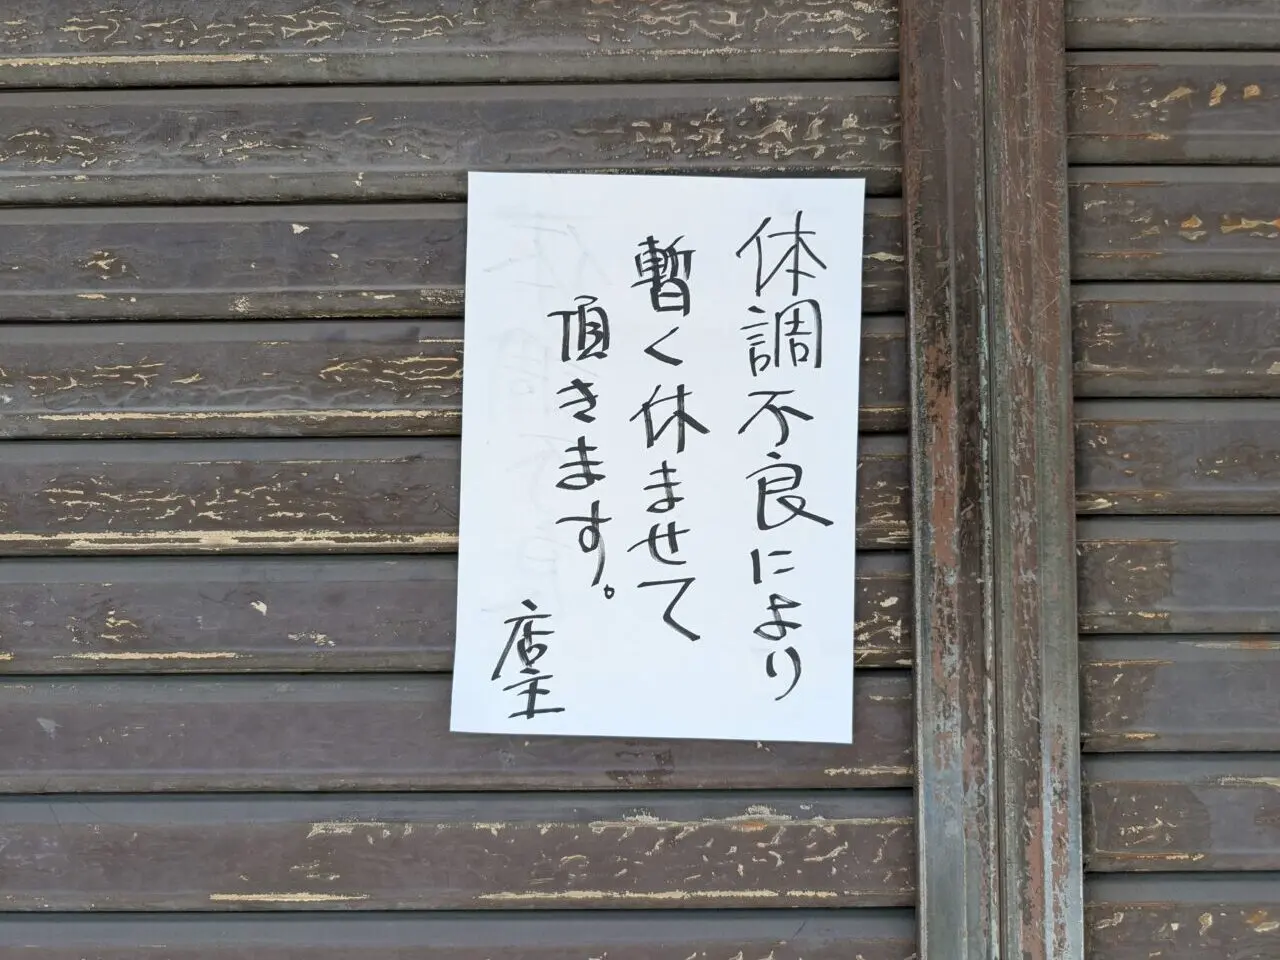 体調不良により
暫く休ませて
頂きます。
店主